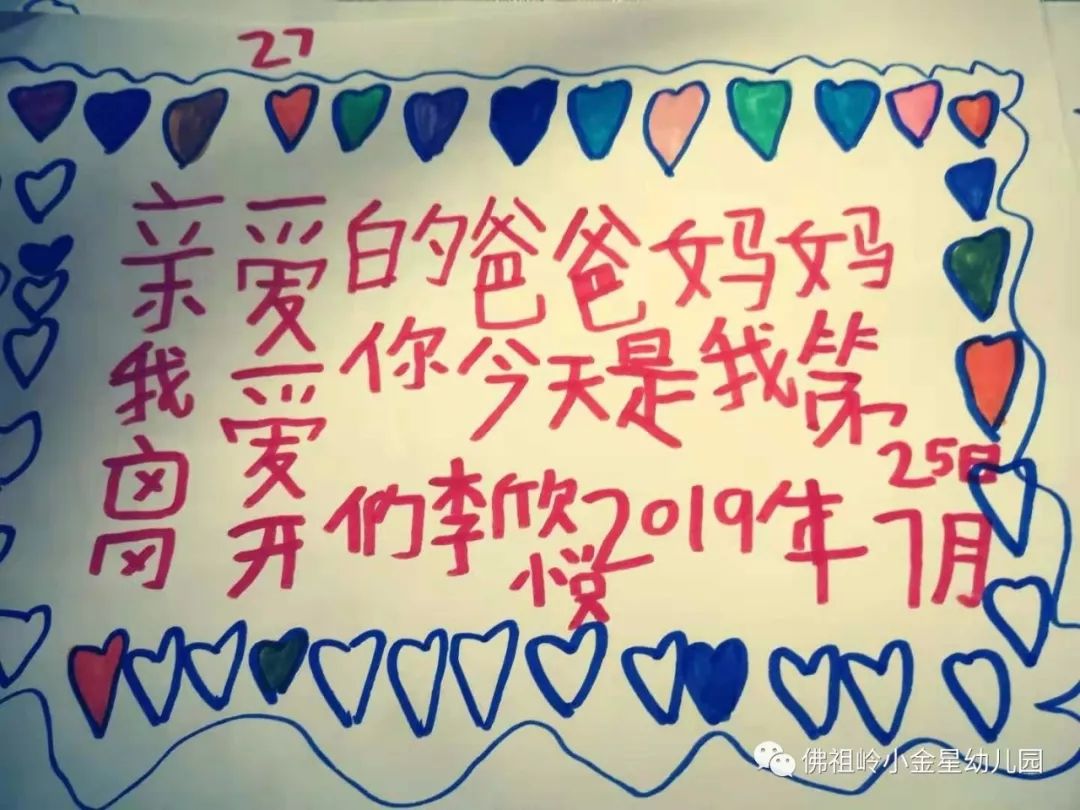 27
亲爱的爸爸妈妈
我爱你今天是我第
离开们李欣2019年7月
25日
悦
佛祖岭小金星幼儿园